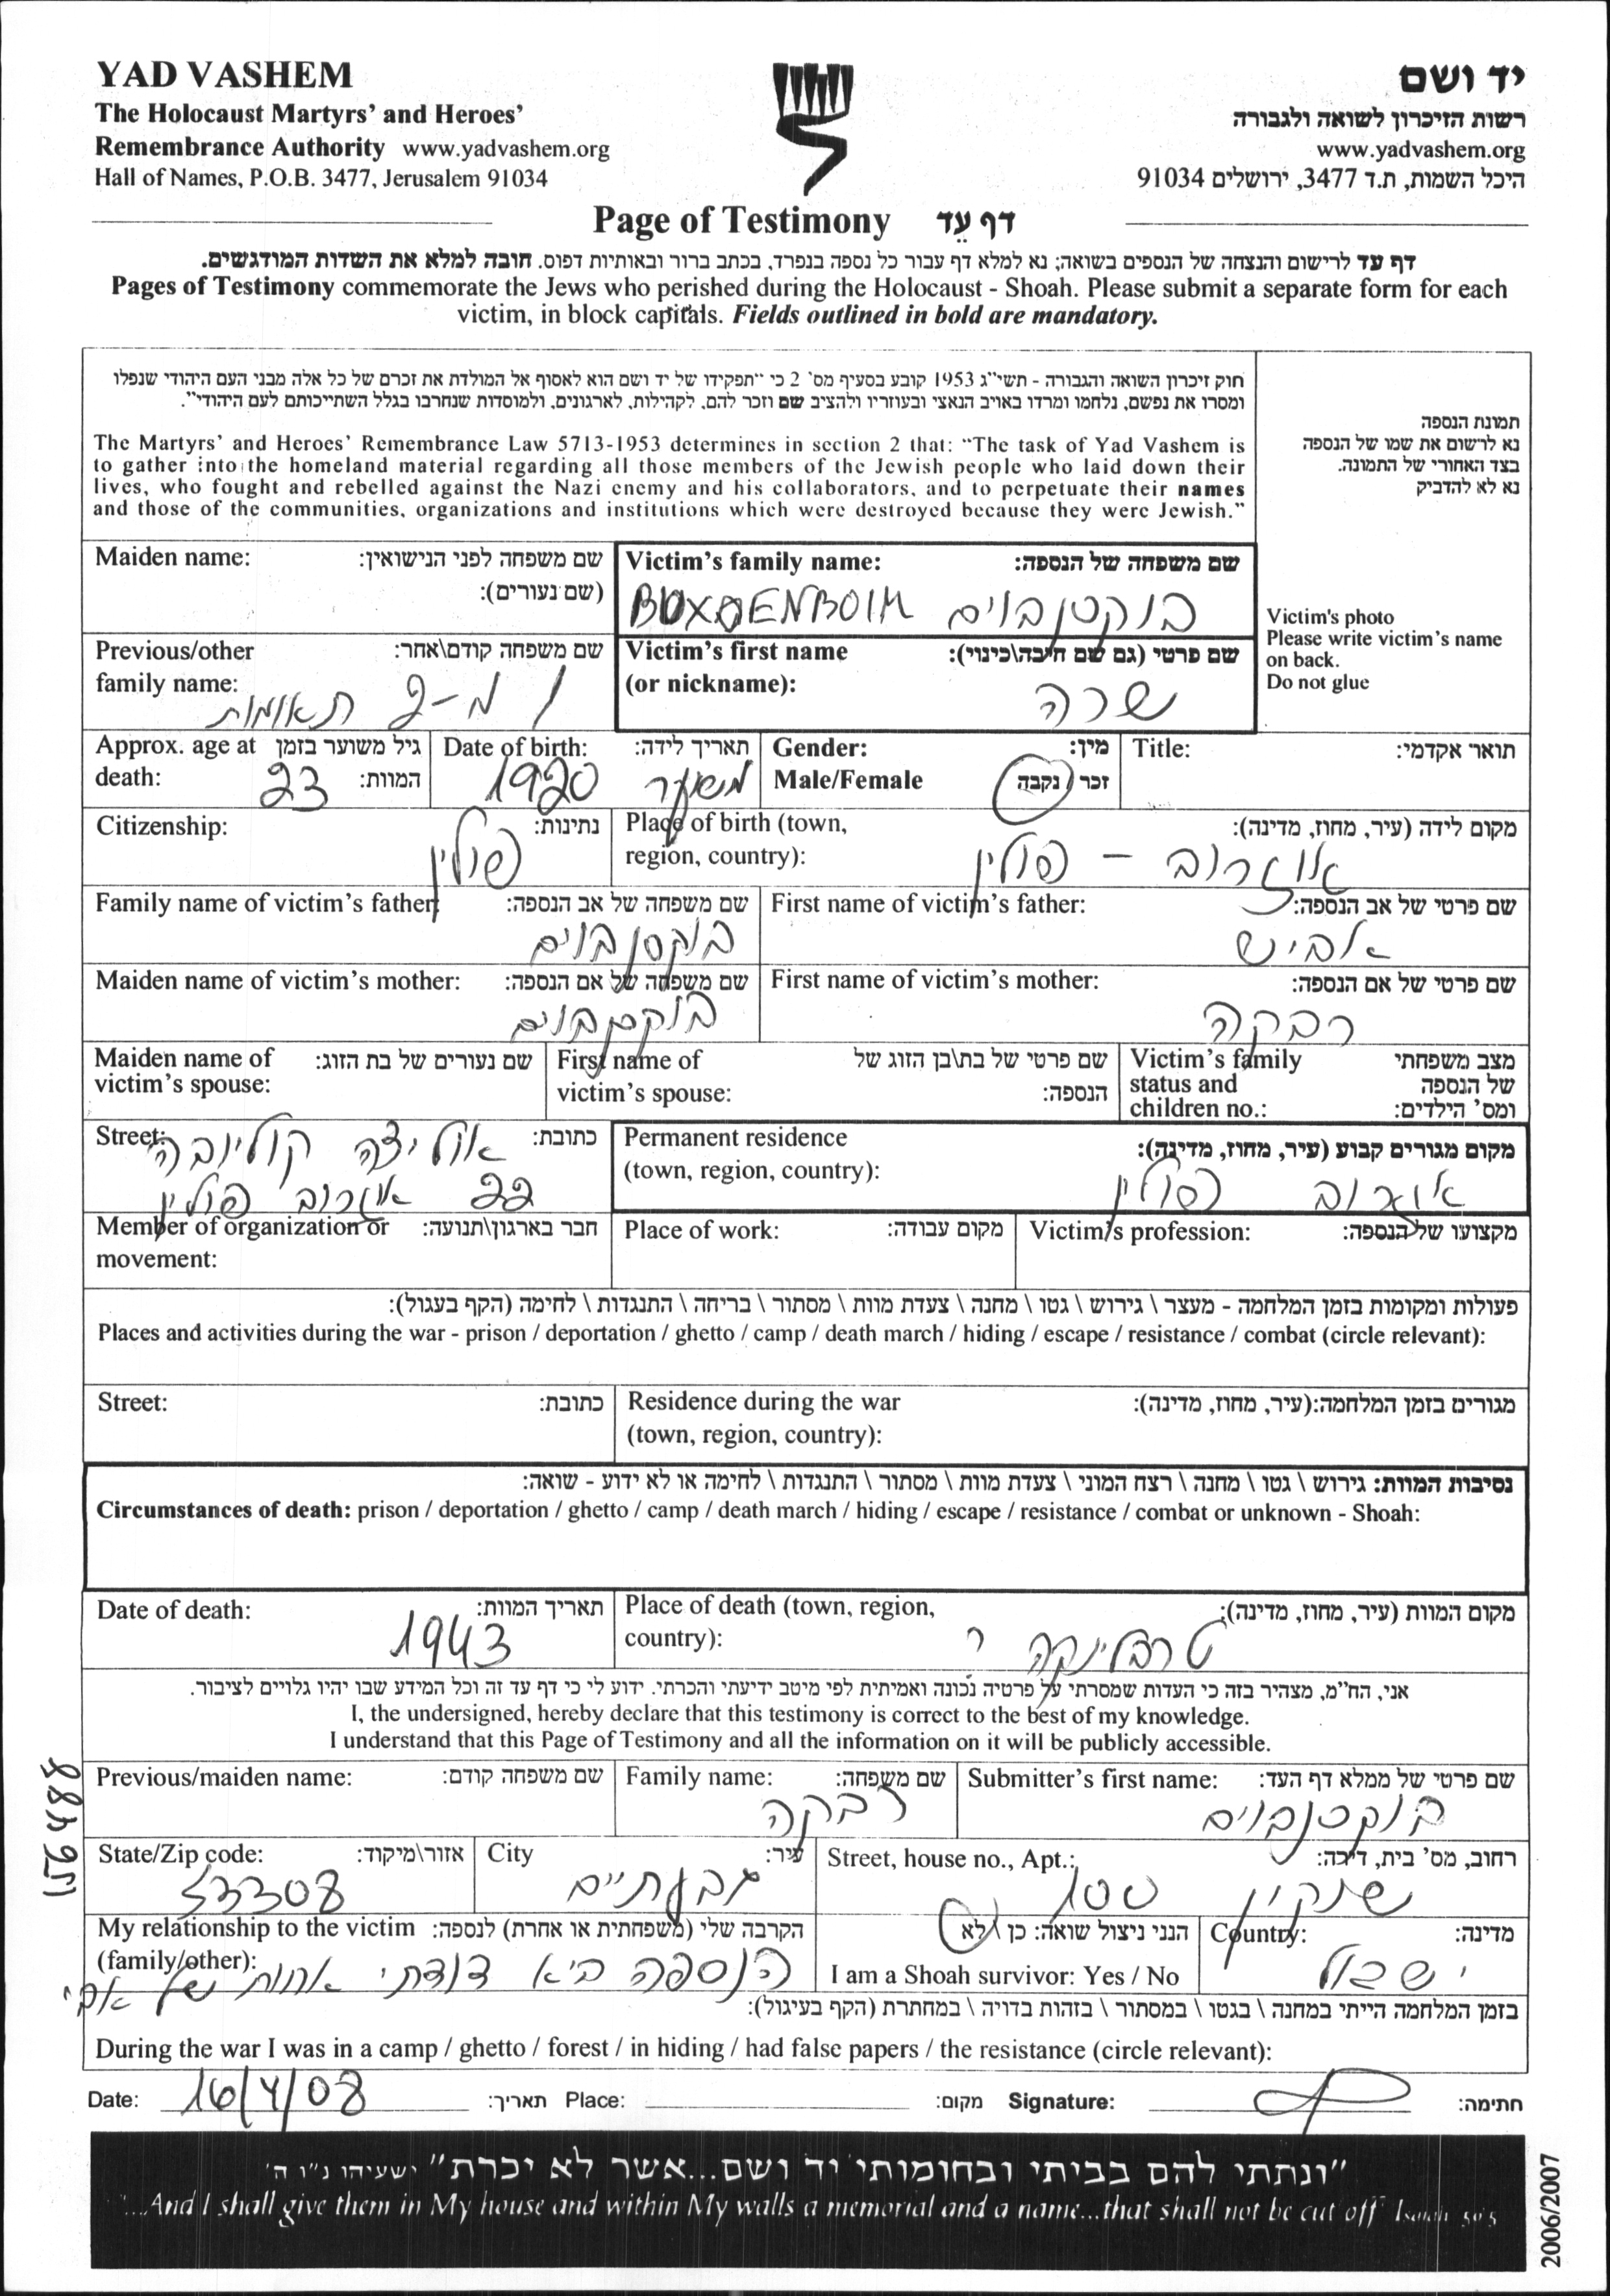 YAD VASHEM
יד ושם
The Holocaust Martyrs' and Heroes'
רשות הזיכרון לשואה ולגבורה
Remembrance Authority www.yadvashem.org
www.yadvashem.org
Hall of Names, P.O.B. 3477, Jerusalem 91034
היכל השמות, ת.ד 3477, ירושלים 91034
Page of Testimony דף עֵד
דף עד לרישום והנצחה של הנספים בשואה; נא למלא דף עבור כל נספה בנפרד, בכתב ברור ובאותיות דפוס. חובה למלא את השדות המודגשים.
Pages of Testimony commemorate the Jews who perished during the Holocaust - Shoah. Please submit a separate form for each
victim, in block capitals. Fields outlined in bold are mandatory.
חוק זיכרון השואה והגבורה - תשי"ג 1953 קובע בסעיף מס' 2 כי "תפקידו של יד ושם הוא לאסוף אל המולדת את זכרם של כל אלה מבני העם היהודי שנפלו
ומסרו את נפשם, נלחמו ומרדו באויב הנאצי ובעוזריו ולהציב שם וזכר להם, לקהילות, לארגונים, ולמוסדות שנחרבו בגלל השתייכותם לעם היהודי".
The Martyrs' and Heroes' Remembrance Law 5713-1953 determines in section 2 that: "The task of Yad Vashem is
to gather into the homeland material regarding all those members of the Jewish people who laid down their
lives, who fought and rebelled against the Nazi enemy and his collaborators, and to perpetuate their names
and those of the communities, organizations and institutions which were destroyed because they were Jewish."
תמונת הנספה
נא לרשום את שמו של הנספה
בצד האחורי של התמונה.
נא לא להדביק
Victim's photo
Please write victim's name
on back.
Do not glue
Maiden name: שם משפחה לפני הנישואין:
(שם נעורים):
Victim's family name: שם משפחה של הנספה:
בוקסנבוים
Previous/other שם משפחה קודם\אחר:
family name:
1 מ-2 תאומות
Victim's first name שם פרטי (גם שם חיבה\כינוי):
(or nickname):
שרה
Approx. age at גיל משוער בזמן
death: 23 המוות:
Date of birth: תאריך לידה:
1920 משוער
Gender: מין:
Male/Female זכר / נקבה
Title: תואר אקדמי:
Citizenship: נתינות:
פולין
Place of birth (town, מקום לידה (עיר, מחוז, מדינה):
region, country):
אוזרוב - פולין
Family name of victim's father: שם משפחה של אב הנספה:
בוקסנבוים
First name of victim's father: שם פרטי של אב הנספה:
אביש
Maiden name of victim's mother: שם משפחה של אם הנספה:
בוקסנבוים
First name of victim's mother: שם פרטי של אם הנספה:
רבקה
Maiden name of שם נעורים של בת הזוג:
victim's spouse:
First name of שם פרטי של בת\בן הזוג של
victim's spouse: הנספה:
Victim's family מצב משפחתי
status and של הנספה
children no.: ומס' הילדים:
Street: כתובת:
אוליצה קולינבה
22 אוזרוב פולין
Permanent residence מקום מגורים קבוע (עיר, מחוז, מדינה):
(town, region, country):
אוזרוב פולין
Member of organization or חבר בארגון\תנועה:
movement:
Place of work: מקום עבודה:
Victim's profession: מקצועו של הנספה:
פעולות ומקומות בזמן המלחמה - מעצר \ גירוש \ גטו \ מחנה \ צעדת מוות \ מסתור \ בריחה \ התנגדות \ לחימה (הקף בעגול):
Places and activities during the war - prison / deportation / ghetto / camp / death march / hiding / escape / resistance / combat (circle relevant):
Street: כתובת:
Residence during the war מגורים בזמן המלחמה:(עיר, מחוז, מדינה):
(town, region, country):
נסיבות המוות: גירוש \ גטו \ מחנה \ רצח המוני \ צעדת מוות \ מסתור \ התנגדות \ לחימה או לא ידוע - שואה:
Circumstances of death: prison / deportation / ghetto / camp / death march / hiding / escape / resistance / combat or unknown - Shoah:
Date of death: תאריך המוות:
1943
Place of death (town, region, מקום המוות (עיר, מחוז, מדינה):
country):
טרבלינקה ?
אני, הח"מ, מצהיר בזה כי העדות שמסרתי על פרטיה נכונה ואמיתית לפי מיטב ידיעתי והכרתי. ידוע לי כי דף עד זה וכל המידע שבו יהיו גלויים לציבור.
I, the undersigned, hereby declare that this testimony is correct to the best of my knowledge.
I understand that this Page of Testimony and all the information on it will be publicly accessible.
Previous/maiden name: שם משפחה קודם:
Family name: שם משפחה:
רבקה
Submitter's first name: שם פרטי של ממלא דף העד:
בוקסנבוים
State/Zip code: אזור\מיקוד:
53308
City עיר:
גבעתיים
Street, house no., Apt.: רחוב, מס' בית, דירה:
שנקין 100
My relationship to the victim הקרבה שלי (משפחתית או אחרת) לנספה:
(family/other): הנספה היא דודתי אחות של אבי
הנני ניצול שואה: כן \ לא
I am a Shoah survivor: Yes / No
Country: מדינה:
ישראל
בזמן המלחמה הייתי במחנה \ בגטו \ במסתור \ בזהות בדויה \ במחתרת (הקף בעיגול):
During the war I was in a camp / ghetto / forest / in hiding / had false papers / the resistance (circle relevant):
Date: 16/4/08 תאריך: Place: מקום: Signature: חתימה:
"ונתתי להם בביתי ובחומותי יד ושם...אשר לא יכרת" ישעיהו נ"ו ה'
"...And I shall give them in My house and within My walls a memorial and a name...that shall not be cut off" Isaiah 56:5
2006/2007